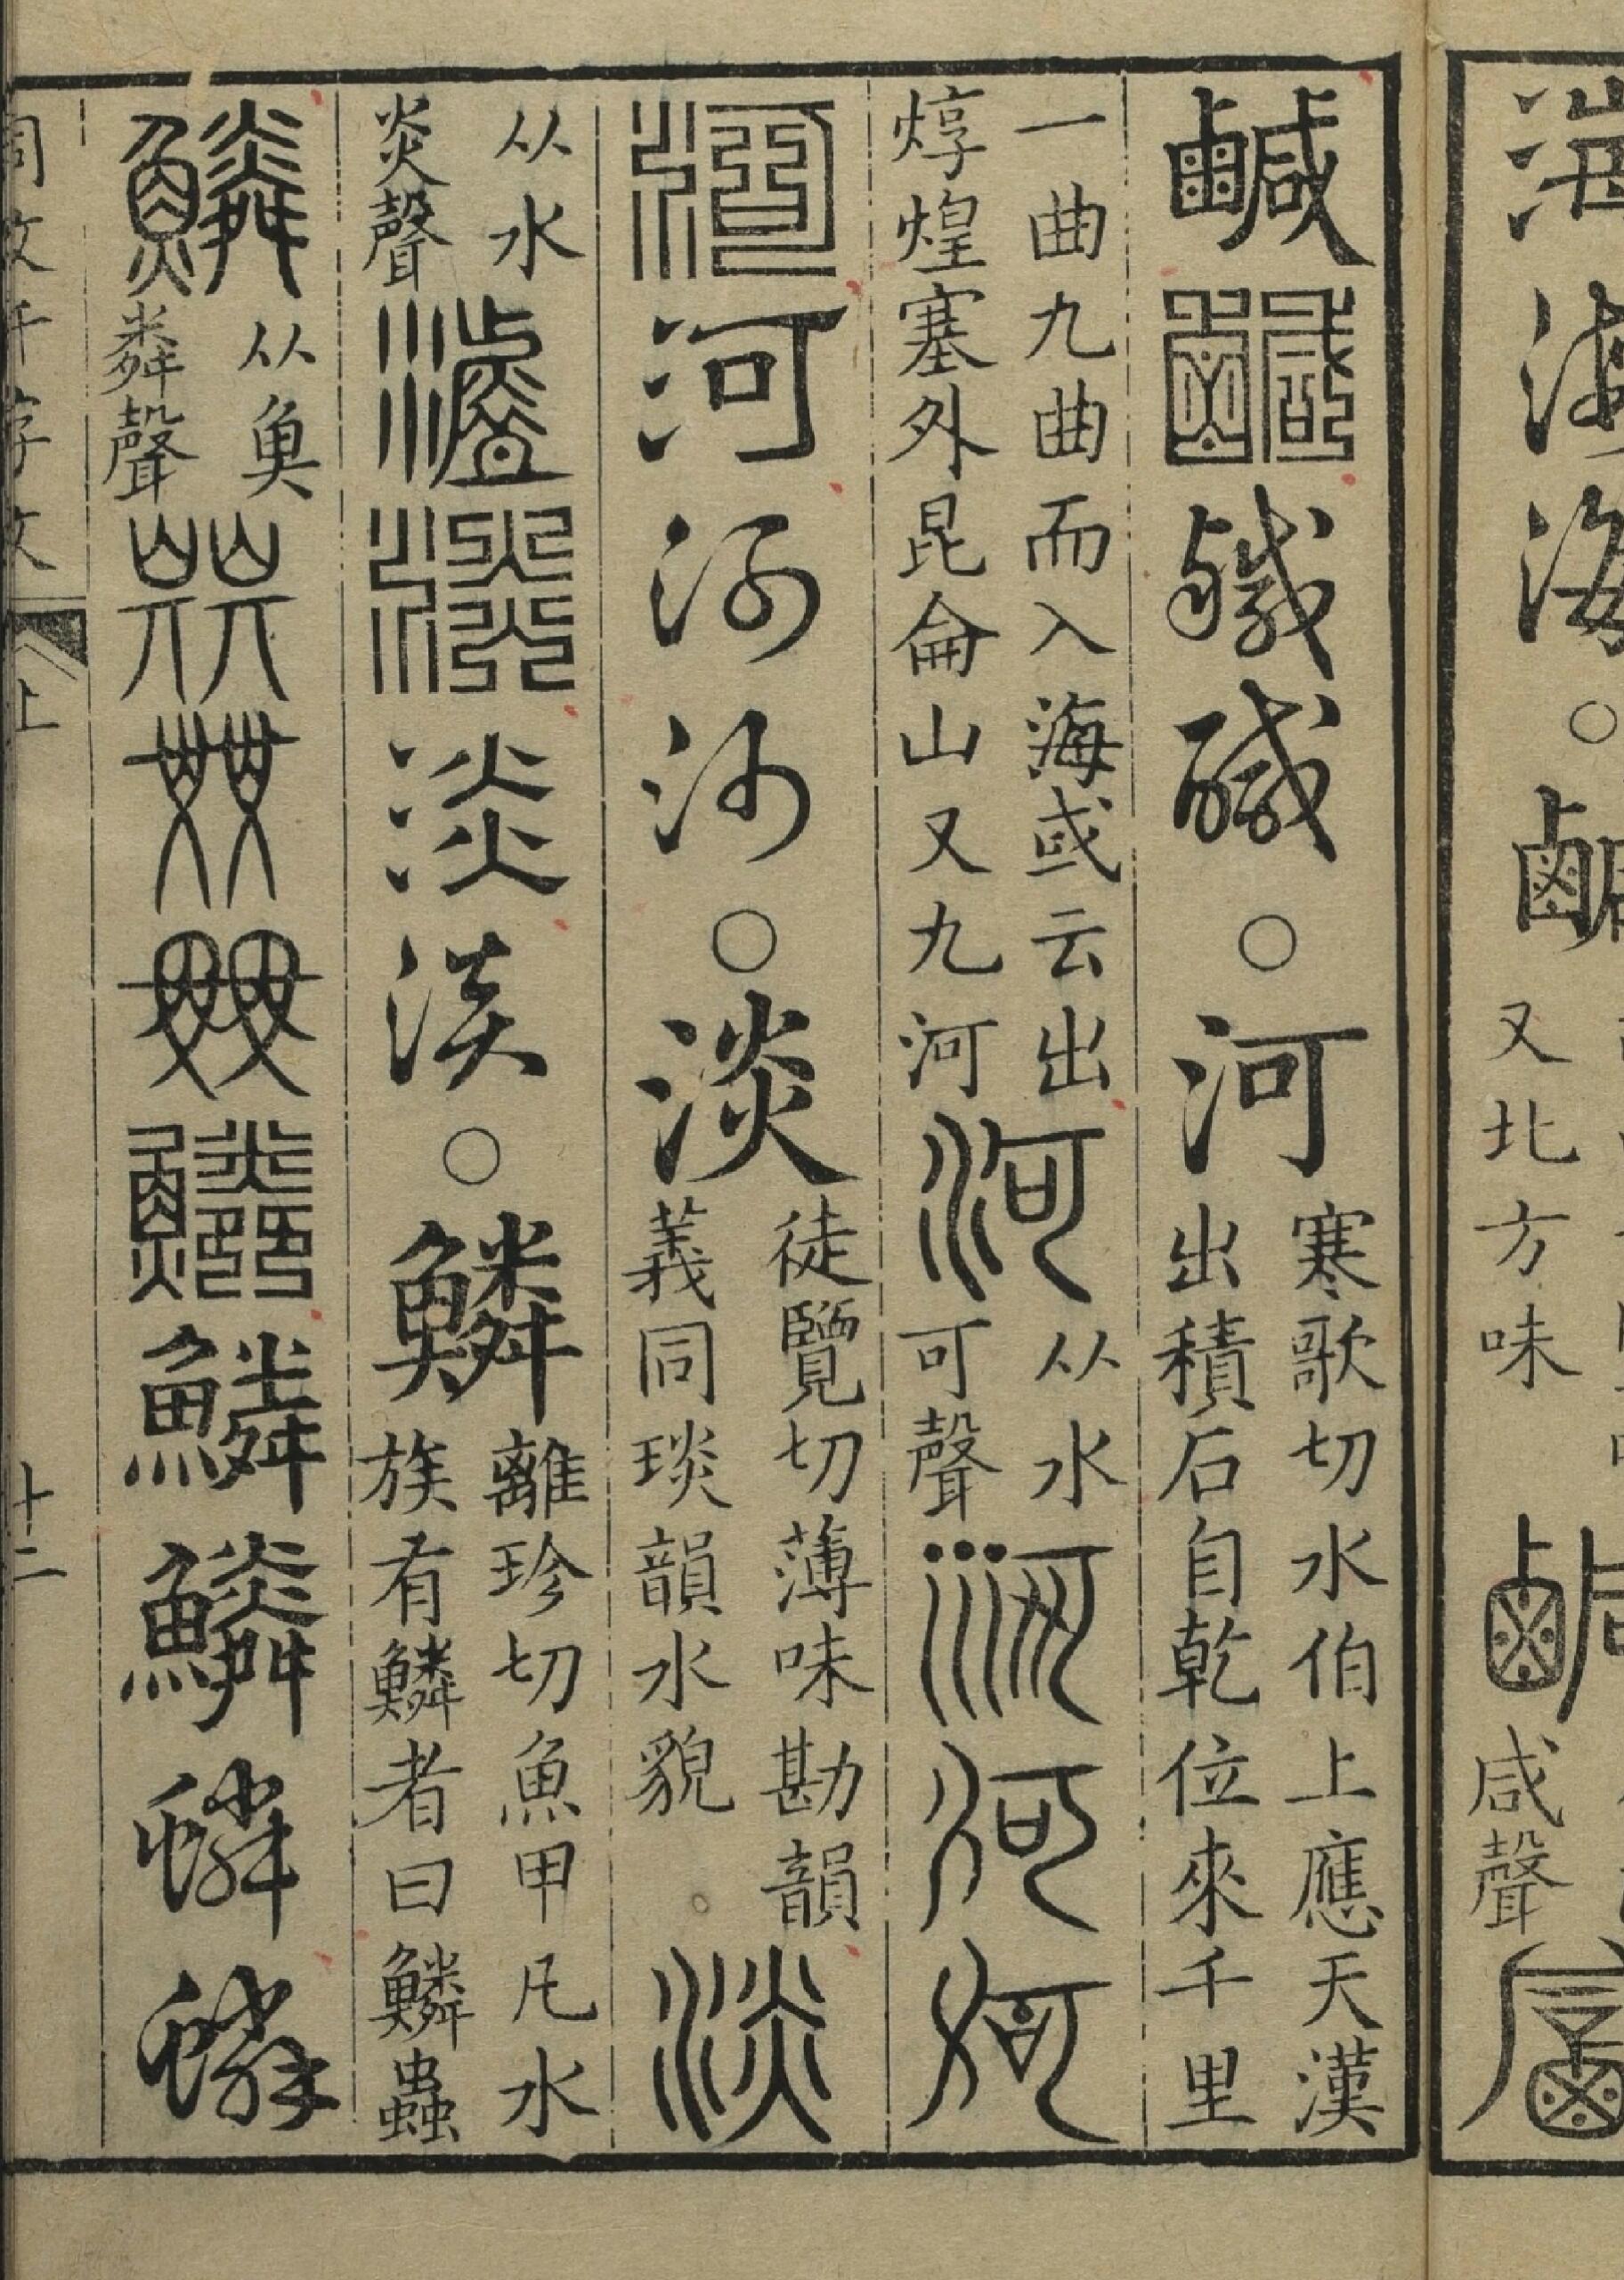 海海海○鹹
又北方味
咸聲
鹹鹹鹹鹹○河寒歌切水伯上應天漢
出積石自乾位來千里
一曲九曲而入海或云出
焞煌塞外昆侖山又九河
河从水
可聲
河河河
河河河河○淡徒覽切薄味勘韻
義同琰韻水貌
淡
从水
炎聲
淡淡淡淡○鱗離珍切魚甲凡水
族有鱗者曰鱗蟲
鱗从魚
粦聲
鱗鱗鱗鱗鱗
同文千字文 上 十二